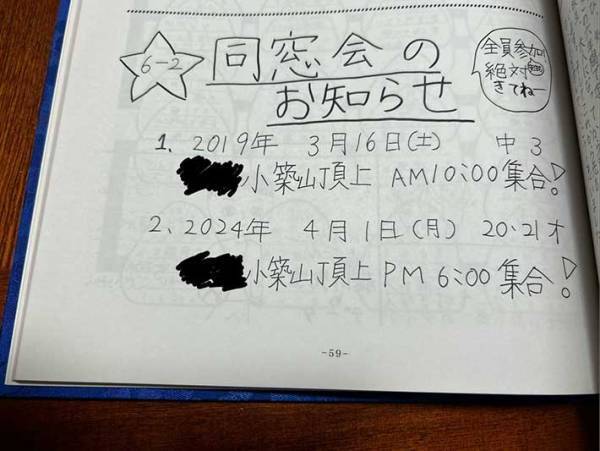 6-2
同窓会の
お知らせ
全員参加
絶対
きてねー
1、2019年 3月16日(土) 中3
小築山頂上 AM10:00集合!
2、2024年 4月1日(月) 20・21才
小築山頂上 PM 6:00集合!
-59-